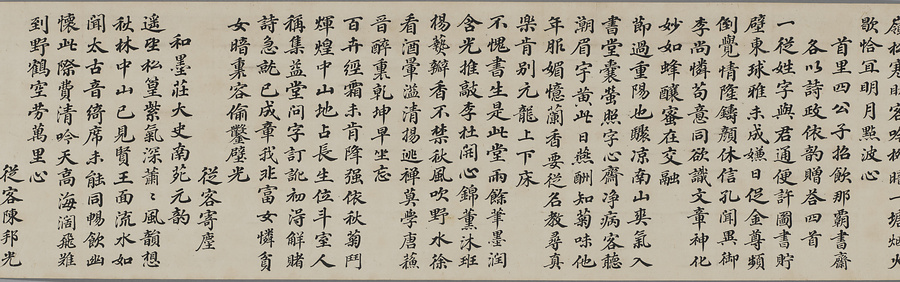 一塘烟火
歇恰宜明月點波心
首里四公子招飲那霸書齋
各以詩政依韵贈答四首
一従姓字與君通便許圖書貯
壁東球雅未成嫌日促金尊頻
倒覺情隆鑄顏休信孔聞異御
李尚憐苟意同欲識文章神化
妙如蜂釀蜜在交融
節過重陽也驟凉南山爽氣入
書堂囊螢照字心齋净病客聽
潮眉宇黄此日燕酬知菊味他
年服媚憶蘭香要従名教尋真
樂肯别元龍上下床
不愧書生是此堂雨餘筆墨潤
含光推敲李杜開心錦薰沐班
楊藝瓣香不禁秋風吹野水徐
看酒暈溢清揚逃禪莫學唐蘇
晉醉裏乾坤早坐忘
百卉經霜未肯降强依秋菊鬥
輝煌中山地占長生位斗室人
稱集益堂問字訂訛初淂解賭
詩急就已成章我非富女憐貧
女暗裏容偷鑿壁光
従客寄塵
和墨莊大史南苑元韵
遥坐松篁紫氣深蕭々風韻想
秋林中山已見賢王面流水如
聞太古音綺席未能同暢飲幽
懷此際費清吟天高海濶飛難
到野鶴空勞萬里心
従客陳邦光